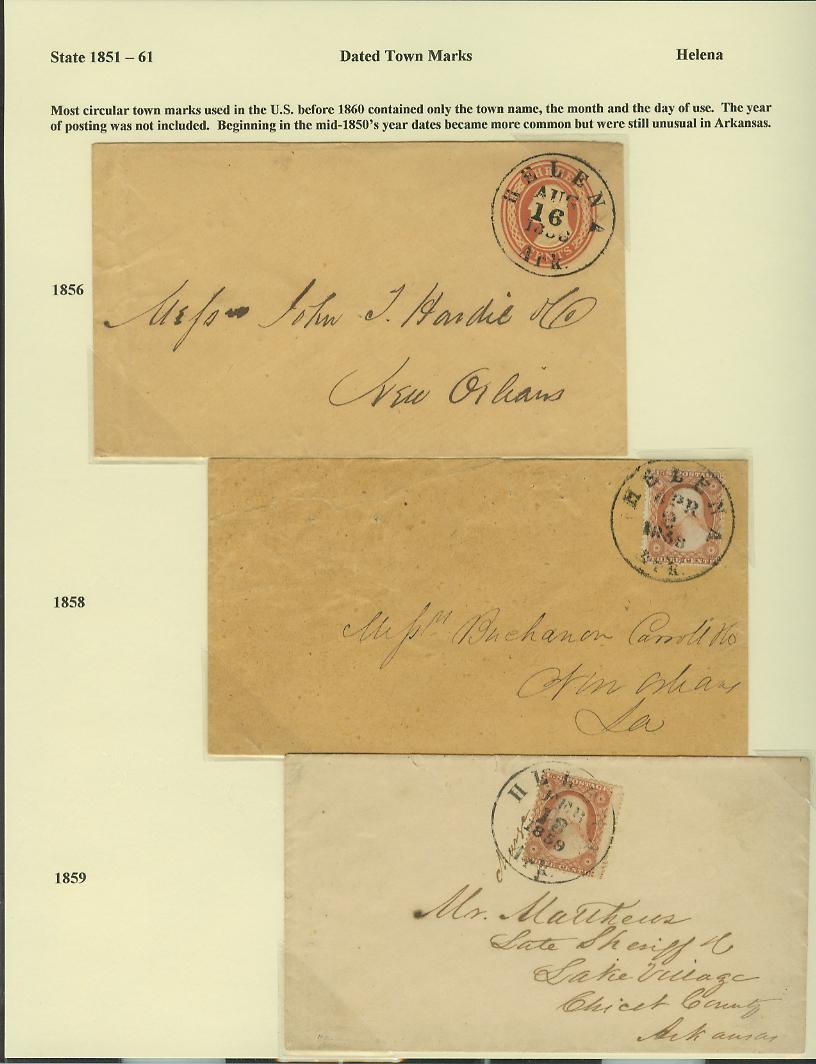 State 1851 – 61 Dated Town Marks Helena
Most circular town marks used in the U.S. before 1860 contained only the town name, the month and the day of use. The year
of posting was not included. Beginning in the mid-1850's year dates became more common but were still unusual in Arkansas.
HELENA
AUG
16
Ark.
CENTS
1856
Messrs John T. Hardie & Co
New Orleans
HELENA
APR
1858
Ark.
1858
Messrs Buchanan Carroll & Co
New Orleans
La
HELE
FEB
1859
Ark.
1859
Mr. Matthews
Late Sheriff &c
Lake Village
Chicot County
Arkansas